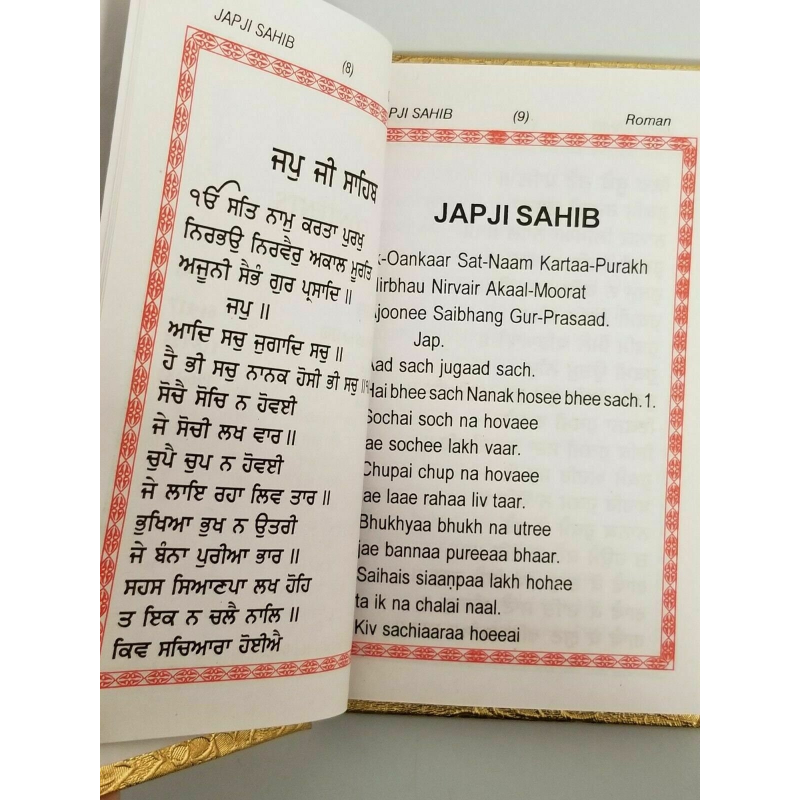 JAPJI SAHIB (8)
ਜਪੁ ਜੀ ਸਾਹਿਬ
ੴ ਸਤਿ ਨਾਮੁ ਕਰਤਾ ਪੁਰਖੁ
ਨਿਰਭਉ ਨਿਰਵੈਰੁ ਅਕਾਲ ਮੂਰਤਿ
ਅਜੂਨੀ ਸੈਭੰ ਗੁਰ ਪ੍ਰਸਾਦਿ॥
ਜਪੁ॥
ਆਦਿ ਸਚੁ ਜੁਗਾਦਿ ਸਚੁ॥
ਹੈ ਭੀ ਸਚੁ ਨਾਨਕ ਹੋਸੀ ਭੀ ਸਚੁ॥੧
ਸੋਚੈ ਸੋਚਿ ਨ ਹੋਵਈ
ਜੇ ਸੋਚੀ ਲਖ ਵਾਰ॥
ਚੁਪੈ ਚੁਪ ਨ ਹੋਵਈ
ਜੇ ਲਾਇ ਰਹਾ ਲਿਵ ਤਾਰ॥
ਭੁਖਿਆ ਭੁਖ ਨ ਉਤਰੀ
ਜੇ ਬੰਨਾ ਪੁਰੀਆ ਭਾਰ॥
ਸਹਸ ਸਿਆਣਪਾ ਲਖ ਹੋਹਿ
ਤ ਇਕ ਨ ਚਲੈ ਨਾਲਿ॥
ਕਿਵ ਸਚਿਆਰਾ ਹੋਈਐ
PJI SAHIB (9) Roman
JAPJI SAHIB
k-Oankaar Sat-Naam Kartaa-Purakh
Nirbhau Nirvair Akaal-Moorat
Ajoonee Saibhang Gur-Prasaad.
Jap.
Aad sach jugaad sach.
Hai bhee sach Nanak hosee bhee sach.1.
Sochai soch na hovaee
jae sochee lakh vaar.
Chupai chup na hovaee
jae laae rahaa liv taar.
Bhukhyaa bhukh na utree
jae bannaa pureeaa bhaar.
Saihais siaaṇpaa lakh hohae
ta ik na chalai naal.
Kiv sachiaaraa hoeeai